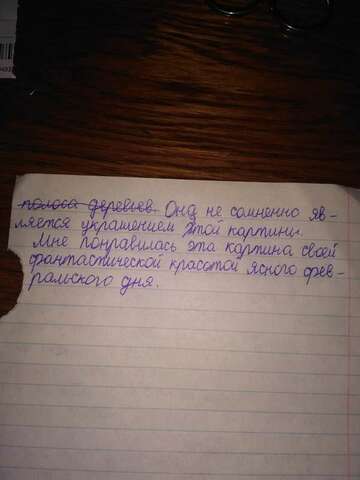 полоса деревьев. Она не сомненно яв-
ляется украшением этой картины.
Мне понравилась эта картина своей
фантастической красотой ясного фев-
ральского дня.